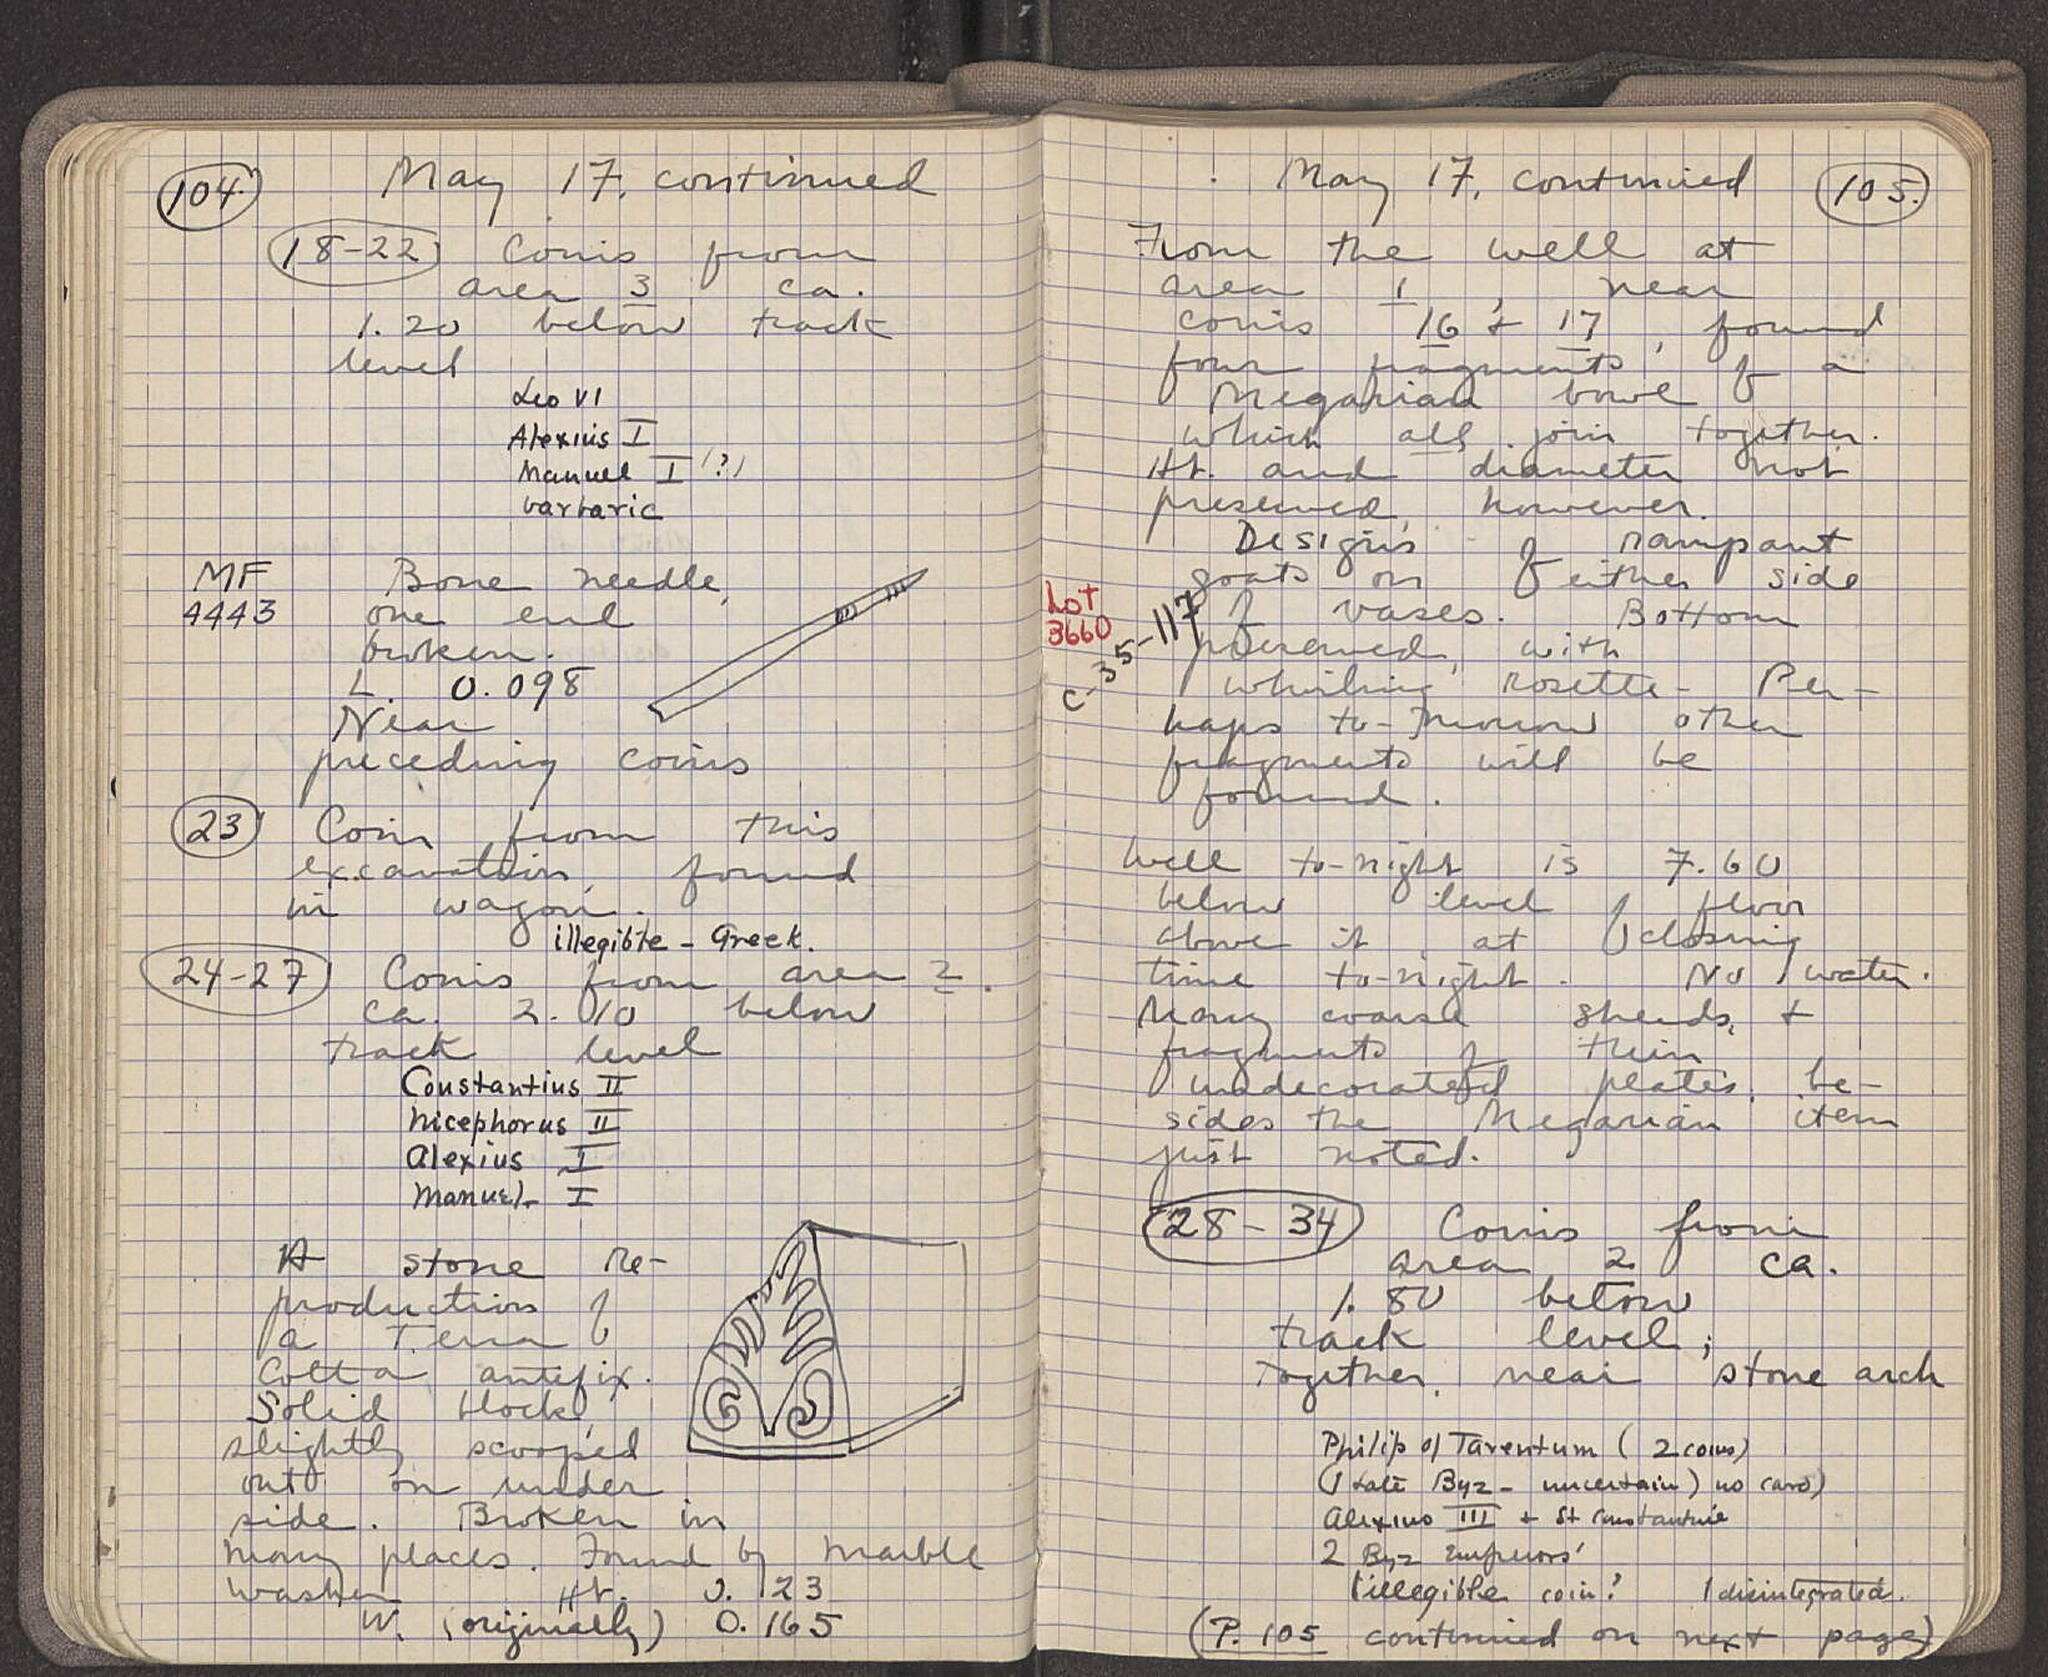 104. May 17, continued
18-22 Coins from
area 3, ca.
1.20 below track
level
Leo VI
Alexius I
Manuel I (?)
barbaric
MF
4443
Bone needle,
one end
broken.
L. 0.098
Near
preceding coins
23 Coin from this
excavation, found
in wagon.
illegible - Greek.
24-27 Coins from area 2.
ca. 2.10 below
track level
Constantius II
Nicephorus II
Alexius I
Manuel I
A stone re-
production of
a Terra
Cotta antefix.
Solid block,
slightly scooped
out on under
side. Broken in
many places. Found by marble
washer Ht. 0.123
W. (originally) 0.165
May 17, continued 105.
From the well at
area 1, near
coins 16 + 17, found
four fragments of a
Megarian bowl
which all join together.
Ht. and diameter not
preserved, however.
Designs of rampant
goats on either side
of vases. Bottom
preserved, with
whirling rosette. Per-
haps to-morrow other
fragments will be
found.
Lot
3660
C-35-117
Well to-night is 7.60
below level of floor
above it at closing
time to-night. No water.
Many coarse sherds, +
fragments of thin
undecorated plates, be-
sides the Megarian item
just noted.
28-34 Coins from
area 2 ca.
1.80 below
track level;
together, near stone arch
Philip of Tarentum (2 coins)
(1 Late Byz - uncertain) no card)
Alexius III + St Constantine
2 Byz emperors'
1 illegible coin? 1 disintegrated.
(P. 105 continued on next page)